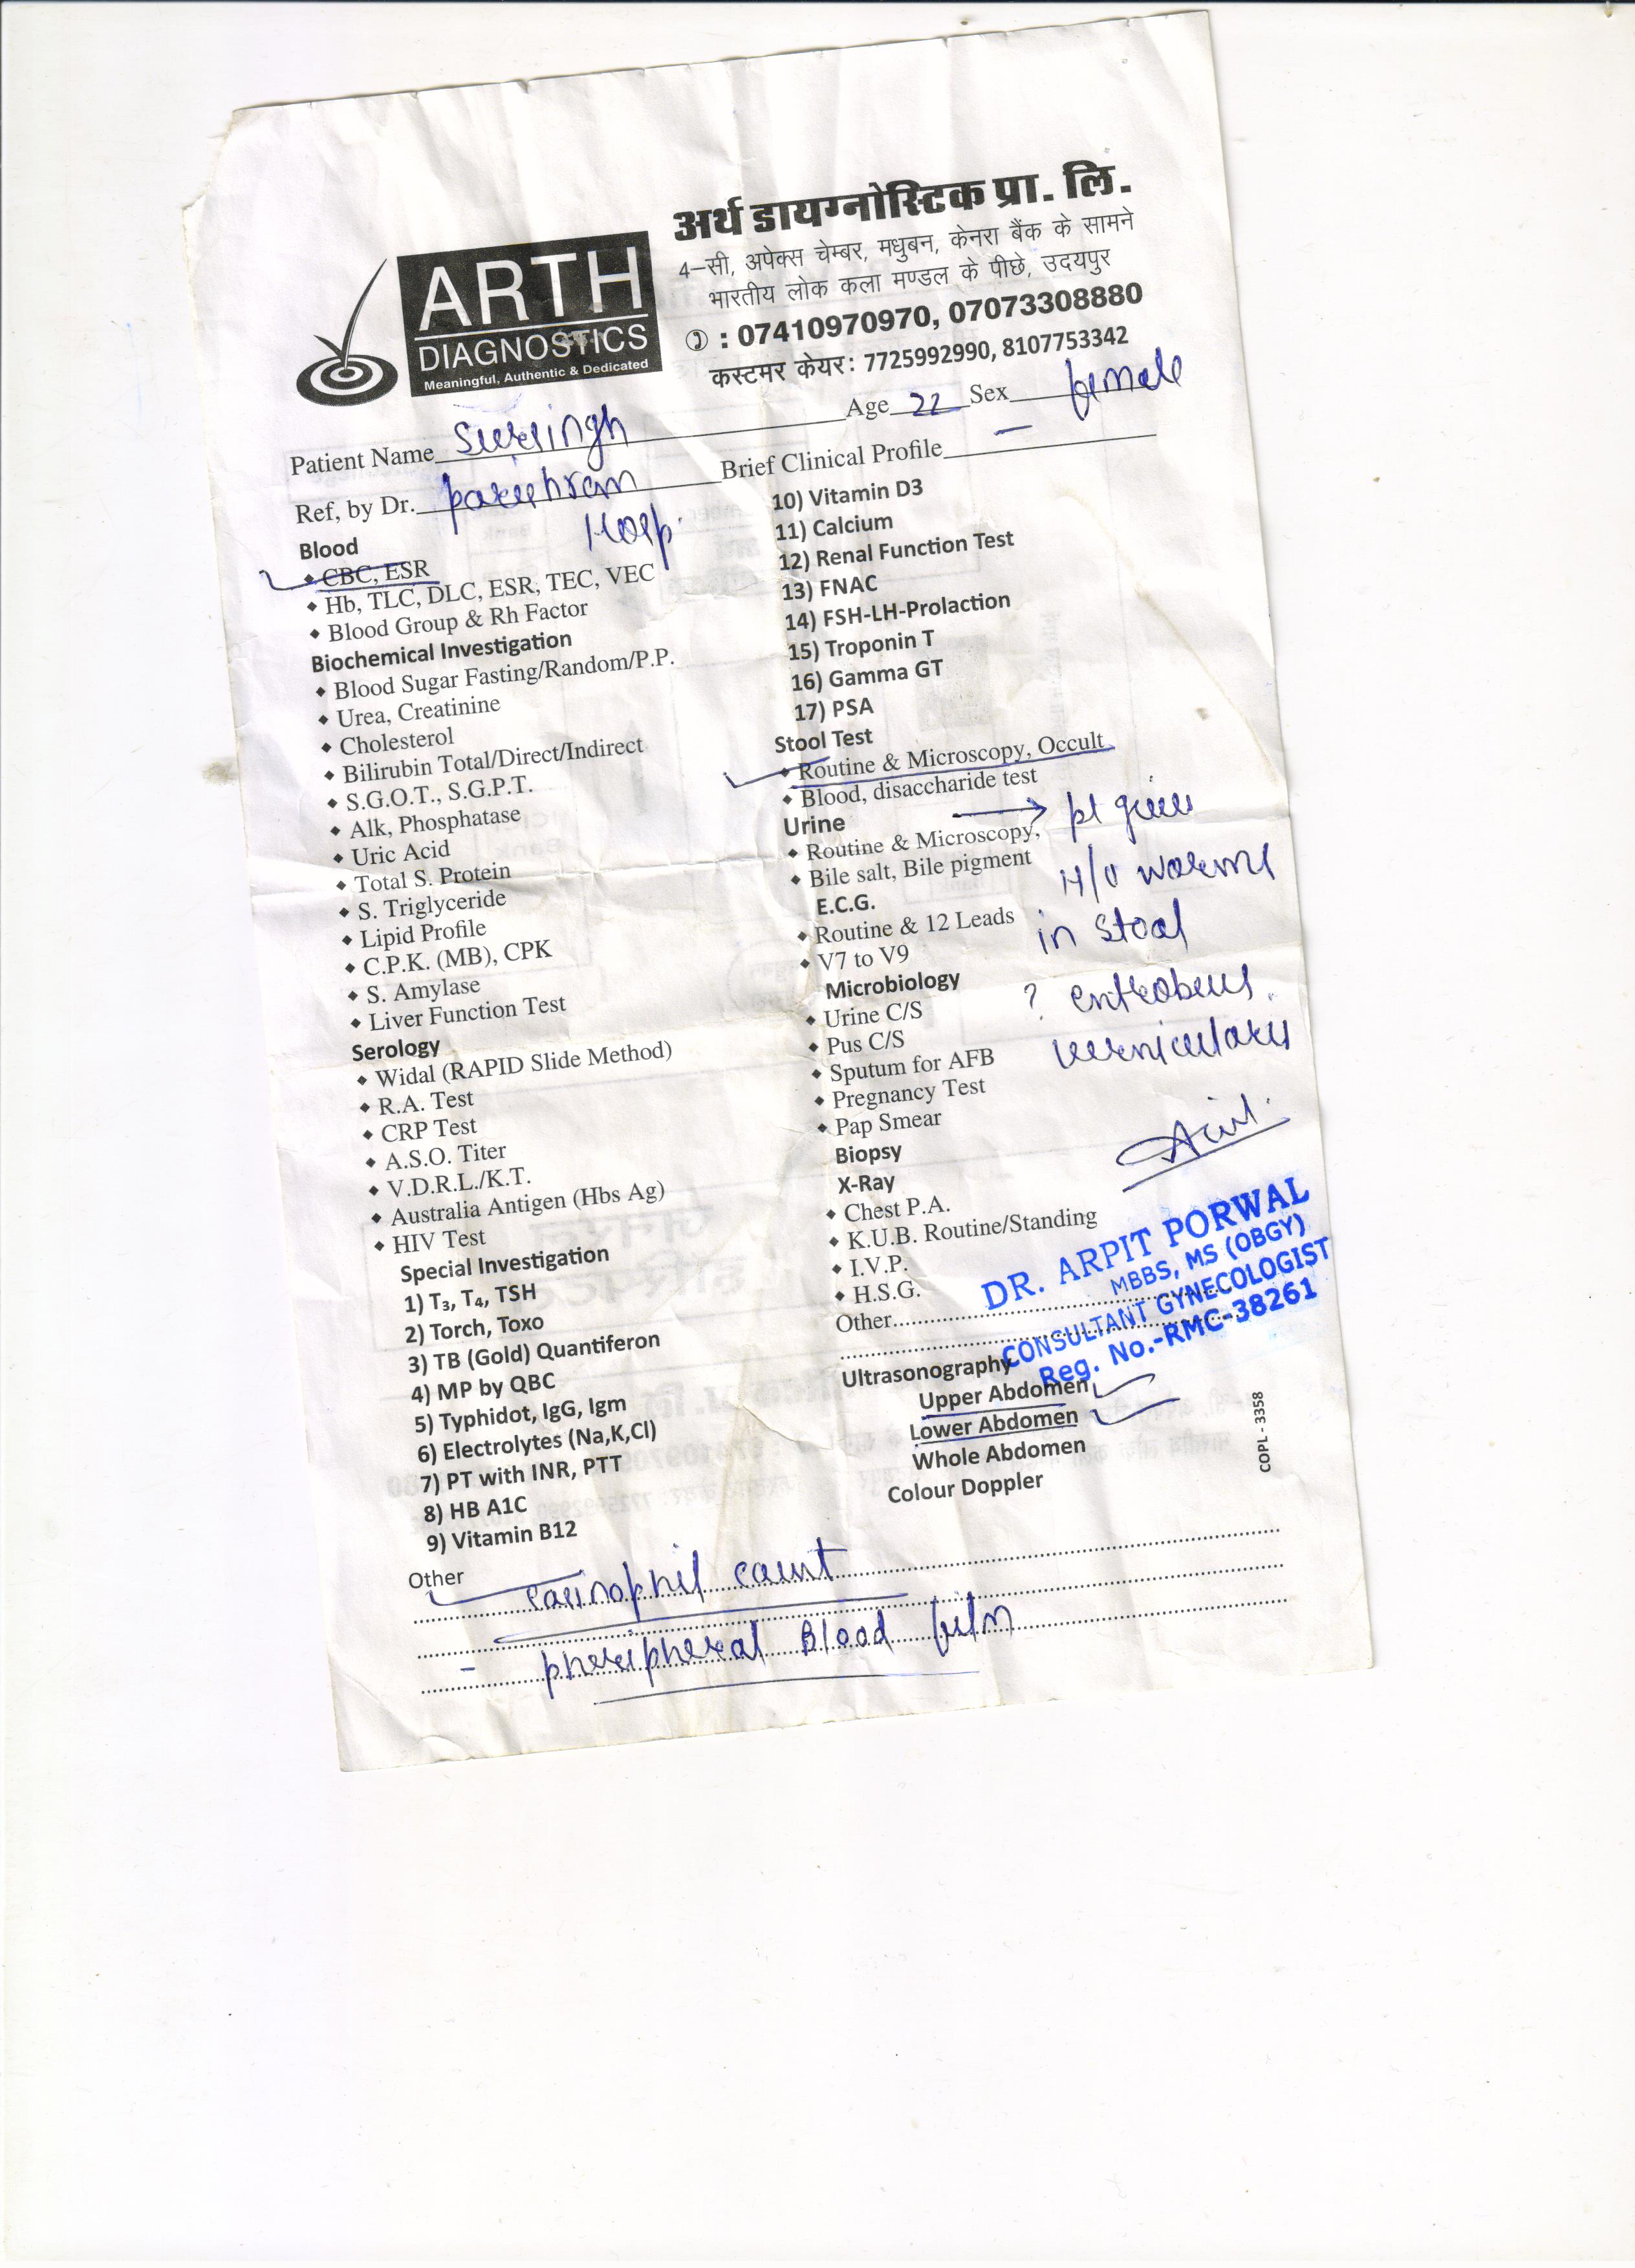 अर्थ डायग्नोस्टिक प्रा. लि.
4-सी, अपेक्स चेम्बर, मधुबन, केनरा बैंक के सामने
भारतीय लोक कला मण्डल के पीछे, उदयपुर
: 07410970970, 07073308880
कस्टमर केयर: 7725992990, 8107753342
ARTH
DIAGNOSTICS
Meaningful, Authentic & Dedicated
Patient Name Age 22 Sex female
Ref, by Dr. Hosp. Brief Clinical Profile –
Blood
CBC, ESR
Hb, TLC, DLC, ESR, TEC, VEC
Blood Group & Rh Factor
Biochemical Investigation
Blood Sugar Fasting/Random/P.P.
Urea, Creatinine
Cholesterol
Bilirubin Total/Direct/Indirect
S.G.O.T., S.G.P.T.
Alk, Phosphatase
Uric Acid
Total S. Protein
S. Triglyceride
Lipid Profile
C.P.K. (MB), CPK
S. Amylase
Liver Function Test
Serology
Widal (RAPID Slide Method)
R.A. Test
CRP Test
A.S.O. Titer
V.D.R.L./K.T.
Australia Antigen (Hbs Ag)
HIV Test
Special Investigation
1) T₃, T₄, TSH
2) Torch, Toxo
3) TB (Gold) Quantiferon
4) MP by QBC
5) Typhidot, IgG, Igm
6) Electrolytes (Na,K,Cl)
7) PT with INR, PTT
8) HB A1C
9) Vitamin B12
10) Vitamin D3
11) Calcium
12) Renal Function Test
13) FNAC
14) FSH-LH-Prolaction
15) Troponin T
16) Gamma GT
17) PSA
Stool Test
Routine & Microscopy, Occult
Blood, disaccharide test
Urine
Routine & Microscopy,
Bile salt, Bile pigment
E.C.G.
Routine & 12 Leads
V7 to V9
Microbiology
Urine C/S
Pus C/S
Sputum for AFB
Pregnancy Test
Pap Smear
Biopsy
X-Ray
Chest P.A.
K.U.B. Routine/Standing
I.V.P.
H.S.G.
Other
→ pt gives
H/O worms
in stool
?
DR. ARPIT PORWAL
MBBS, MS (OBGY)
CONSULTANT GYNECOLOGIST
Reg. No.-RMC-38261
Ultrasonography
Upper Abdomen
Lower Abdomen
Whole Abdomen
Colour Doppler
COPL - 3358
Other
count
- Blood film